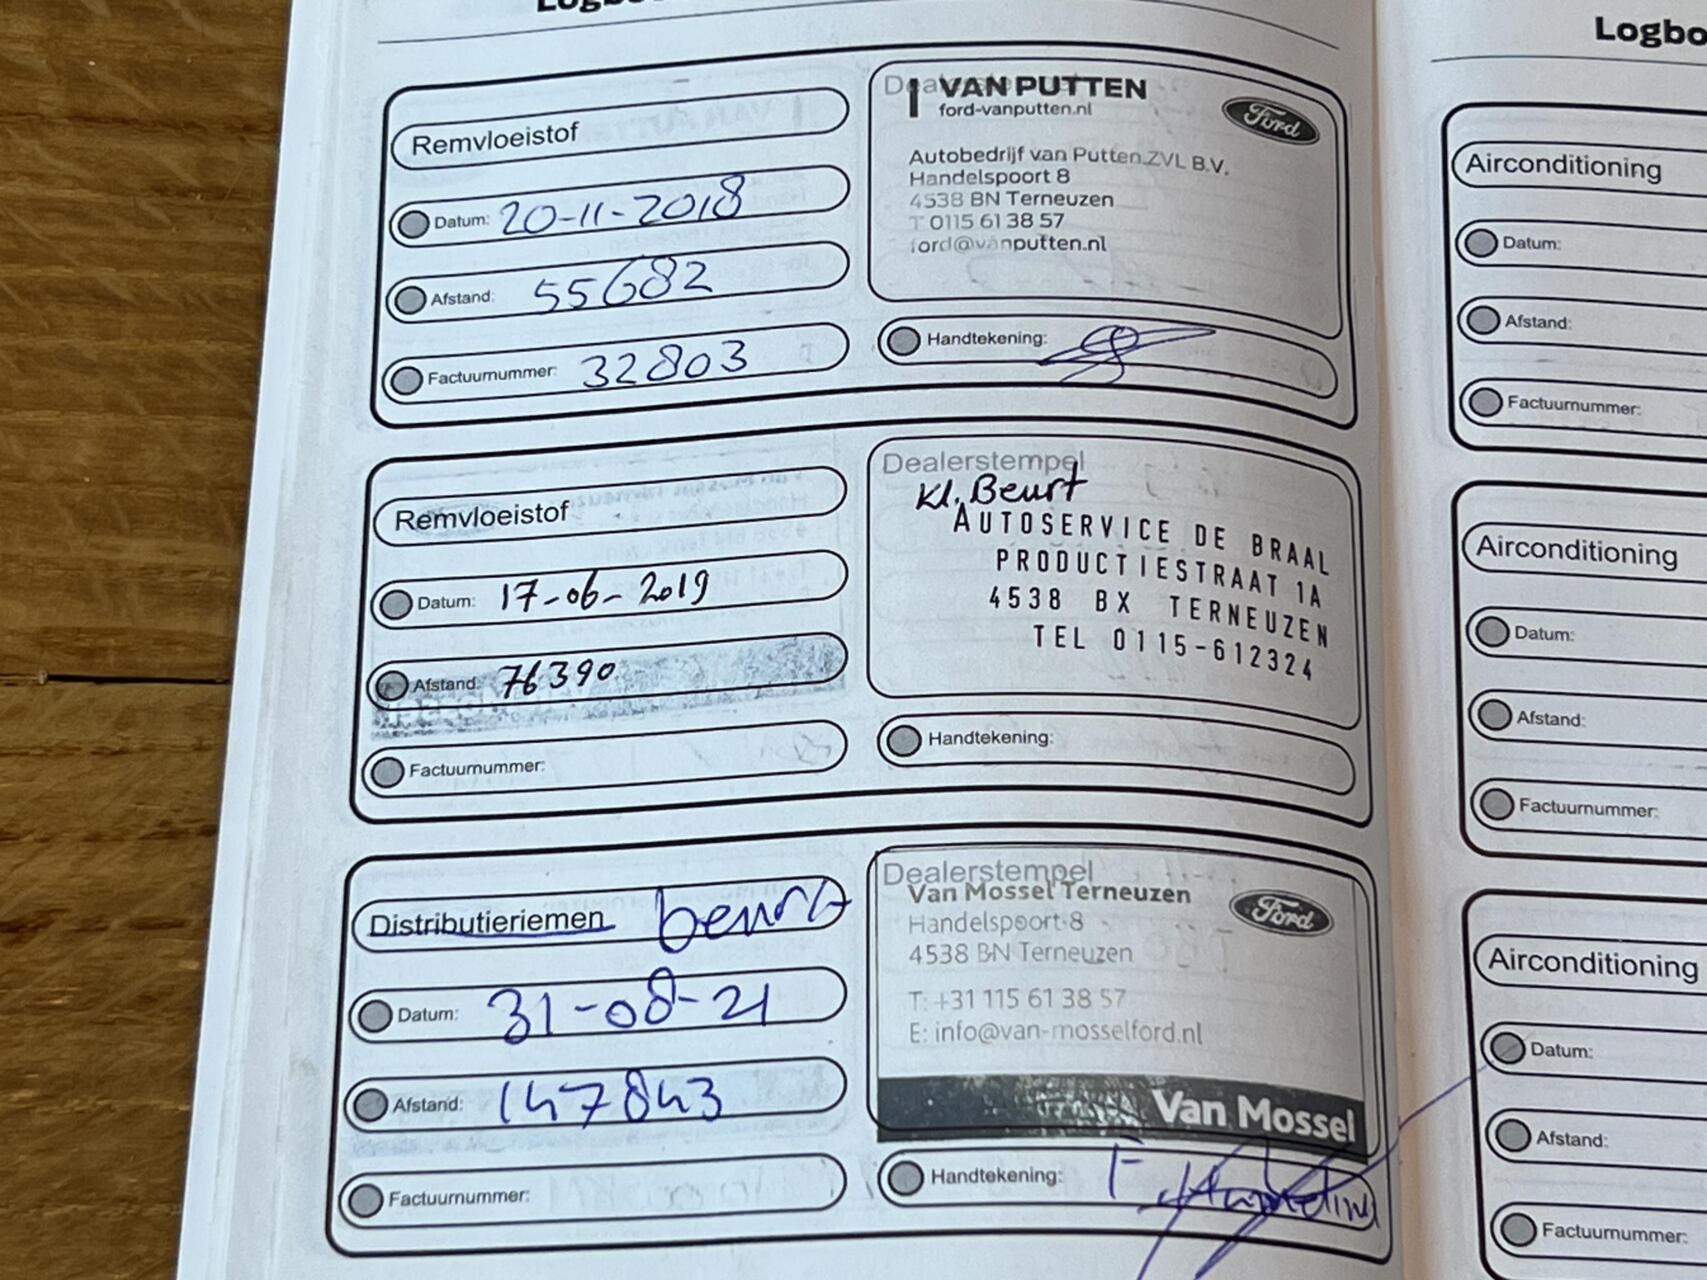 Remvloeistof
Datum: 20-11-2018
Afstand: 55682
Factuurnummer: 32803
VAN PUTTEN
ford-vanputten.nl
Ford
Autobedrijf van Putten ZVL B.V.
Handelspoort 8
4538 BN Terneuzen
T 0115 61 38 57
ford@vanputten.nl
Handtekening:
Remvloeistof
Datum: 17-06-2019
Afstand: 76390
Factuurnummer:
Dealerstempel
Kl. Beurt
AUTOSERVICE DE BRAAL
PRODUCTIESTRAAT 1A
4538 BX TERNEUZEN
TEL 0115-612324
Handtekening:
Distributieriemen beurt
Datum: 31-08-21
Afstand: 147843
Factuurnummer:
Dealerstempel
Van Mossel Terneuzen
Ford
Handelspoort 8
4538 BN Terneuzen
T: +31 115 61 38 57
E: info@van-mosselford.nl
Van Mossel
Handtekening:
Logbo
Airconditioning
Datum:
Afstand:
Factuurnummer:
Airconditioning
Datum:
Afstand:
Factuurnummer:
Airconditioning
Datum:
Afstand:
Factuurnummer: